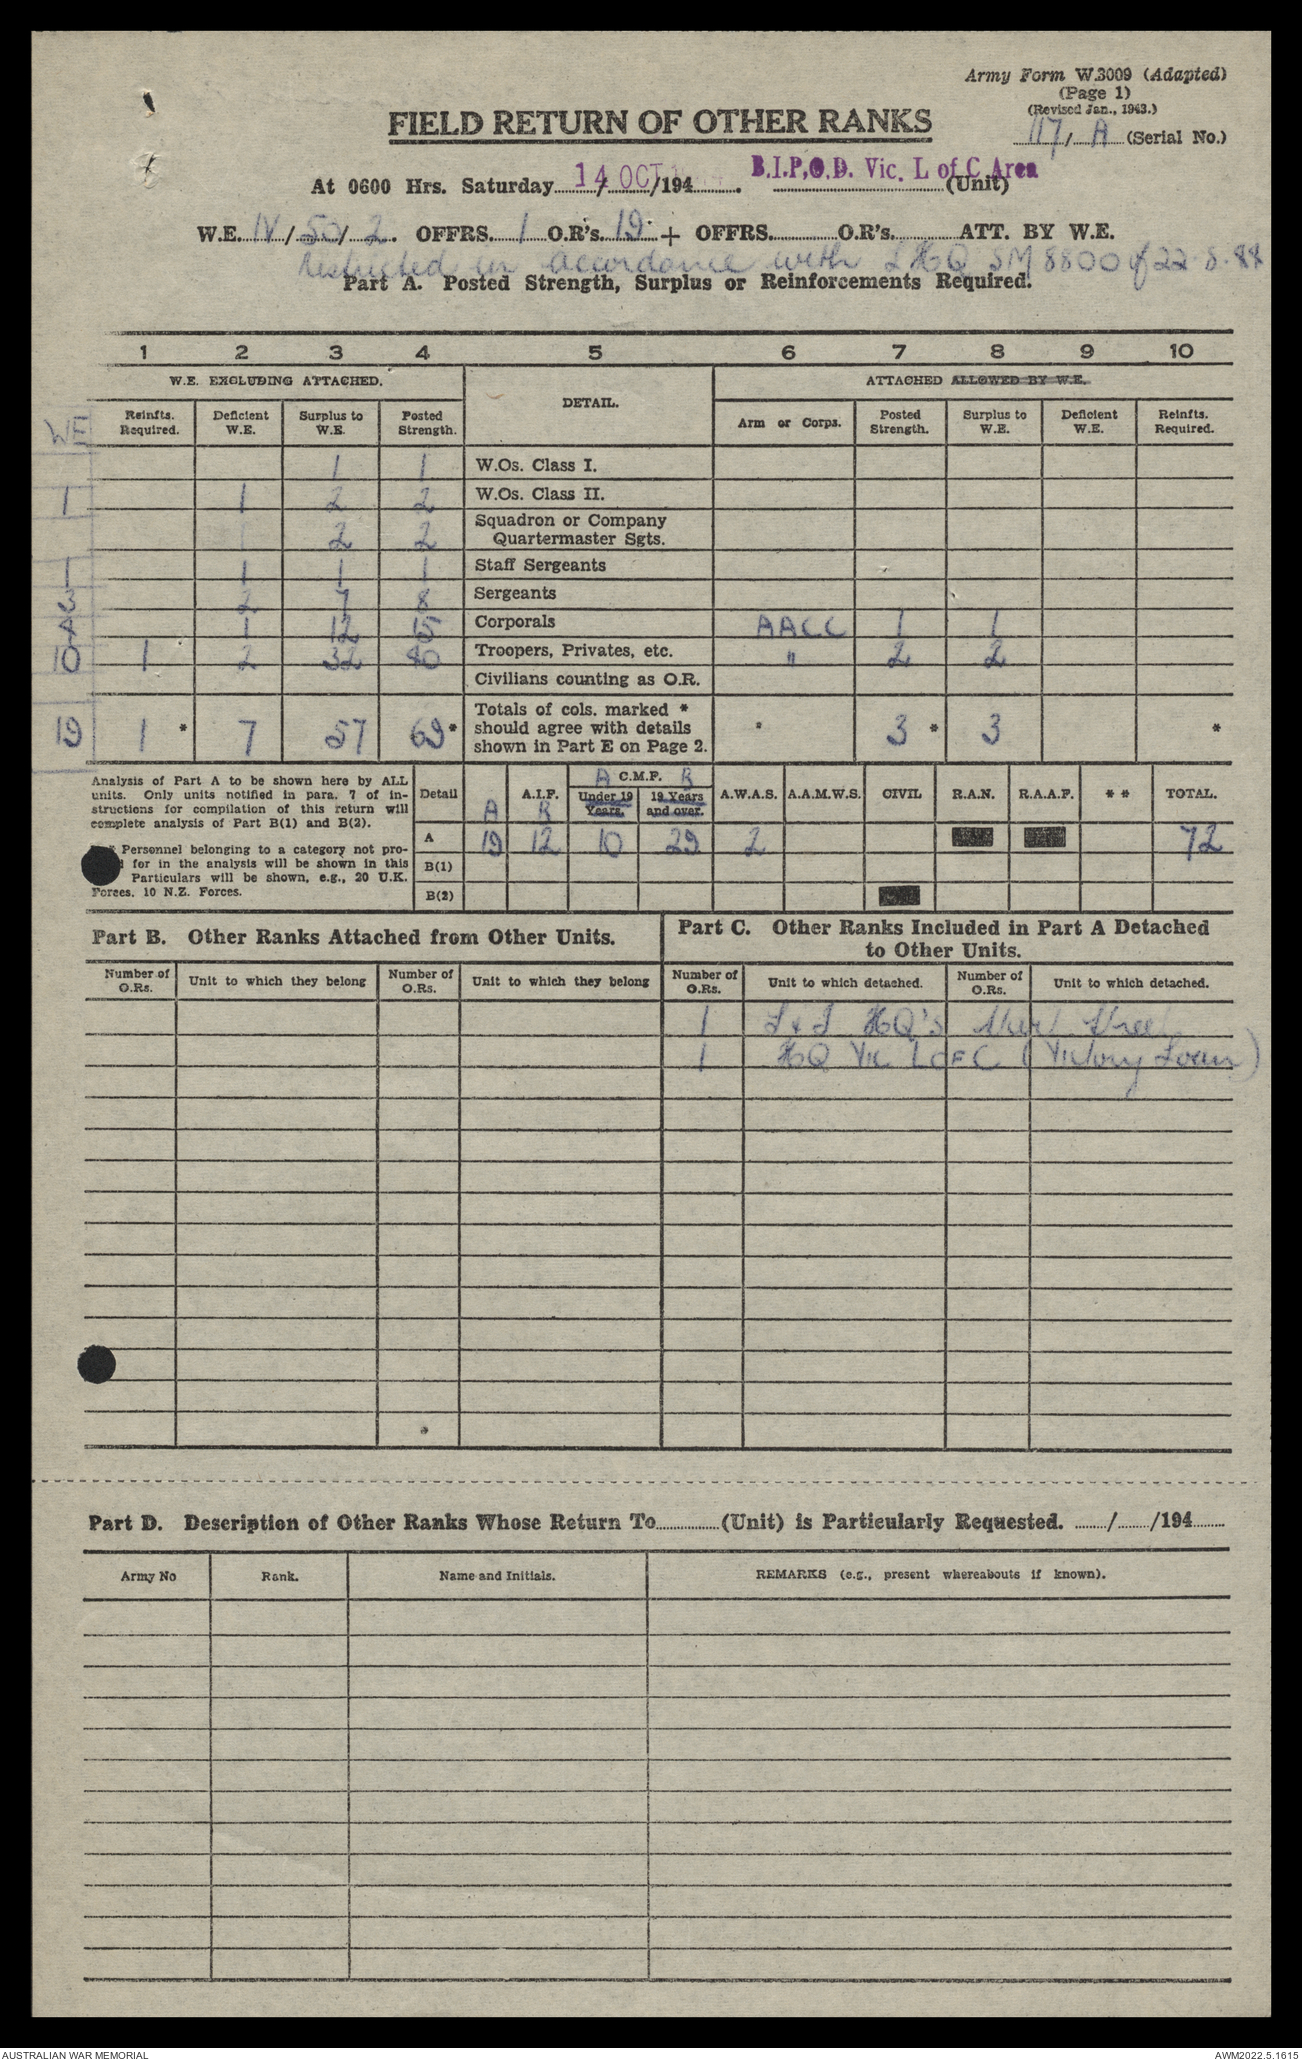 Army Form W.3009 (Adapted)
(Page 1)
(Revised Jan., 1943.)
FIELD RETURN OF OTHER RANKS
117/A (Serial No.)
At 0600 Hrs. Saturday 14 OCT /194 . B.I.P.O.D. Vic. L of C Area (Unit)
W.E. IV/50/2. OFFRS. 1 O.R's. 19 + OFFRS. O.R's. ATT. BY W.E.
Restricted in accordance with LHQ SM 8800 of 22.8.44
Part A. Posted Strength, Surplus or Reinforcements Required.
1 2 3 4 5 6 7 8 9 10
W.E. EXCLUDING ATTACHED. DETAIL. ATTACHED ALLOWED BY W.E.
WE Reinfts. Required. Deficient W.E. Surplus to W.E. Posted Strength. Arm or Corps. Posted Strength. Surplus to W.E. Deficient W.E. Reinfts. Required.
1 1 W.Os. Class I.
1 1 2 2 W.Os. Class II.
2 2 Squadron or Company Quartermaster Sgts.
1 1 1 1 Staff Sergeants
3 2 7 8 Sergeants
4 1 12 15 Corporals AACC 1 1
10 1 2 32 40 Troopers, Privates, etc. " 2 2
Civilians counting as O.R.
19 1 * 7 57 69 * Totals of cols. marked * should agree with details shown in Part E on Page 2. * 3 * 3 *
Analysis of Part A to be shown here by ALL
units. Only units notified in para. 7 of in-
structions for compilation of this return will
complete analysis of Part B(1) and B(2).
Personnel belonging to a category not pro-
for in the analysis will be shown in this
Particulars will be shown, e.g., 20 U.K.
Forces, 10 N.Z. Forces.
Detail A A.I.F. B A C.M.F. B Under 19 Years. 19 Years and over. A.W.A.S. A.A.M.W.S. CIVIL R.A.N. R.A.A.F. ** TOTAL.
A 19 12 10 29 2 72
B(1)
B(2)
Part B. Other Ranks Attached from Other Units.
Part C. Other Ranks Included in Part A Detached
to Other Units.
Number of O.Rs. Unit to which they belong Number of O.Rs. Unit to which they belong Number of O.Rs. Unit to which detached. Number of O.Rs. Unit to which detached.
1 HQ's
1 HQ Vic L of C (Victory Loan)
Part D. Description of Other Ranks Whose Return To (Unit) is Particularly Requested. / /194
Army No Rank. Name and Initials. REMARKS (e.g., present whereabouts if known).
AUSTRALIAN WAR MEMORIAL
AWM2022.5.1615